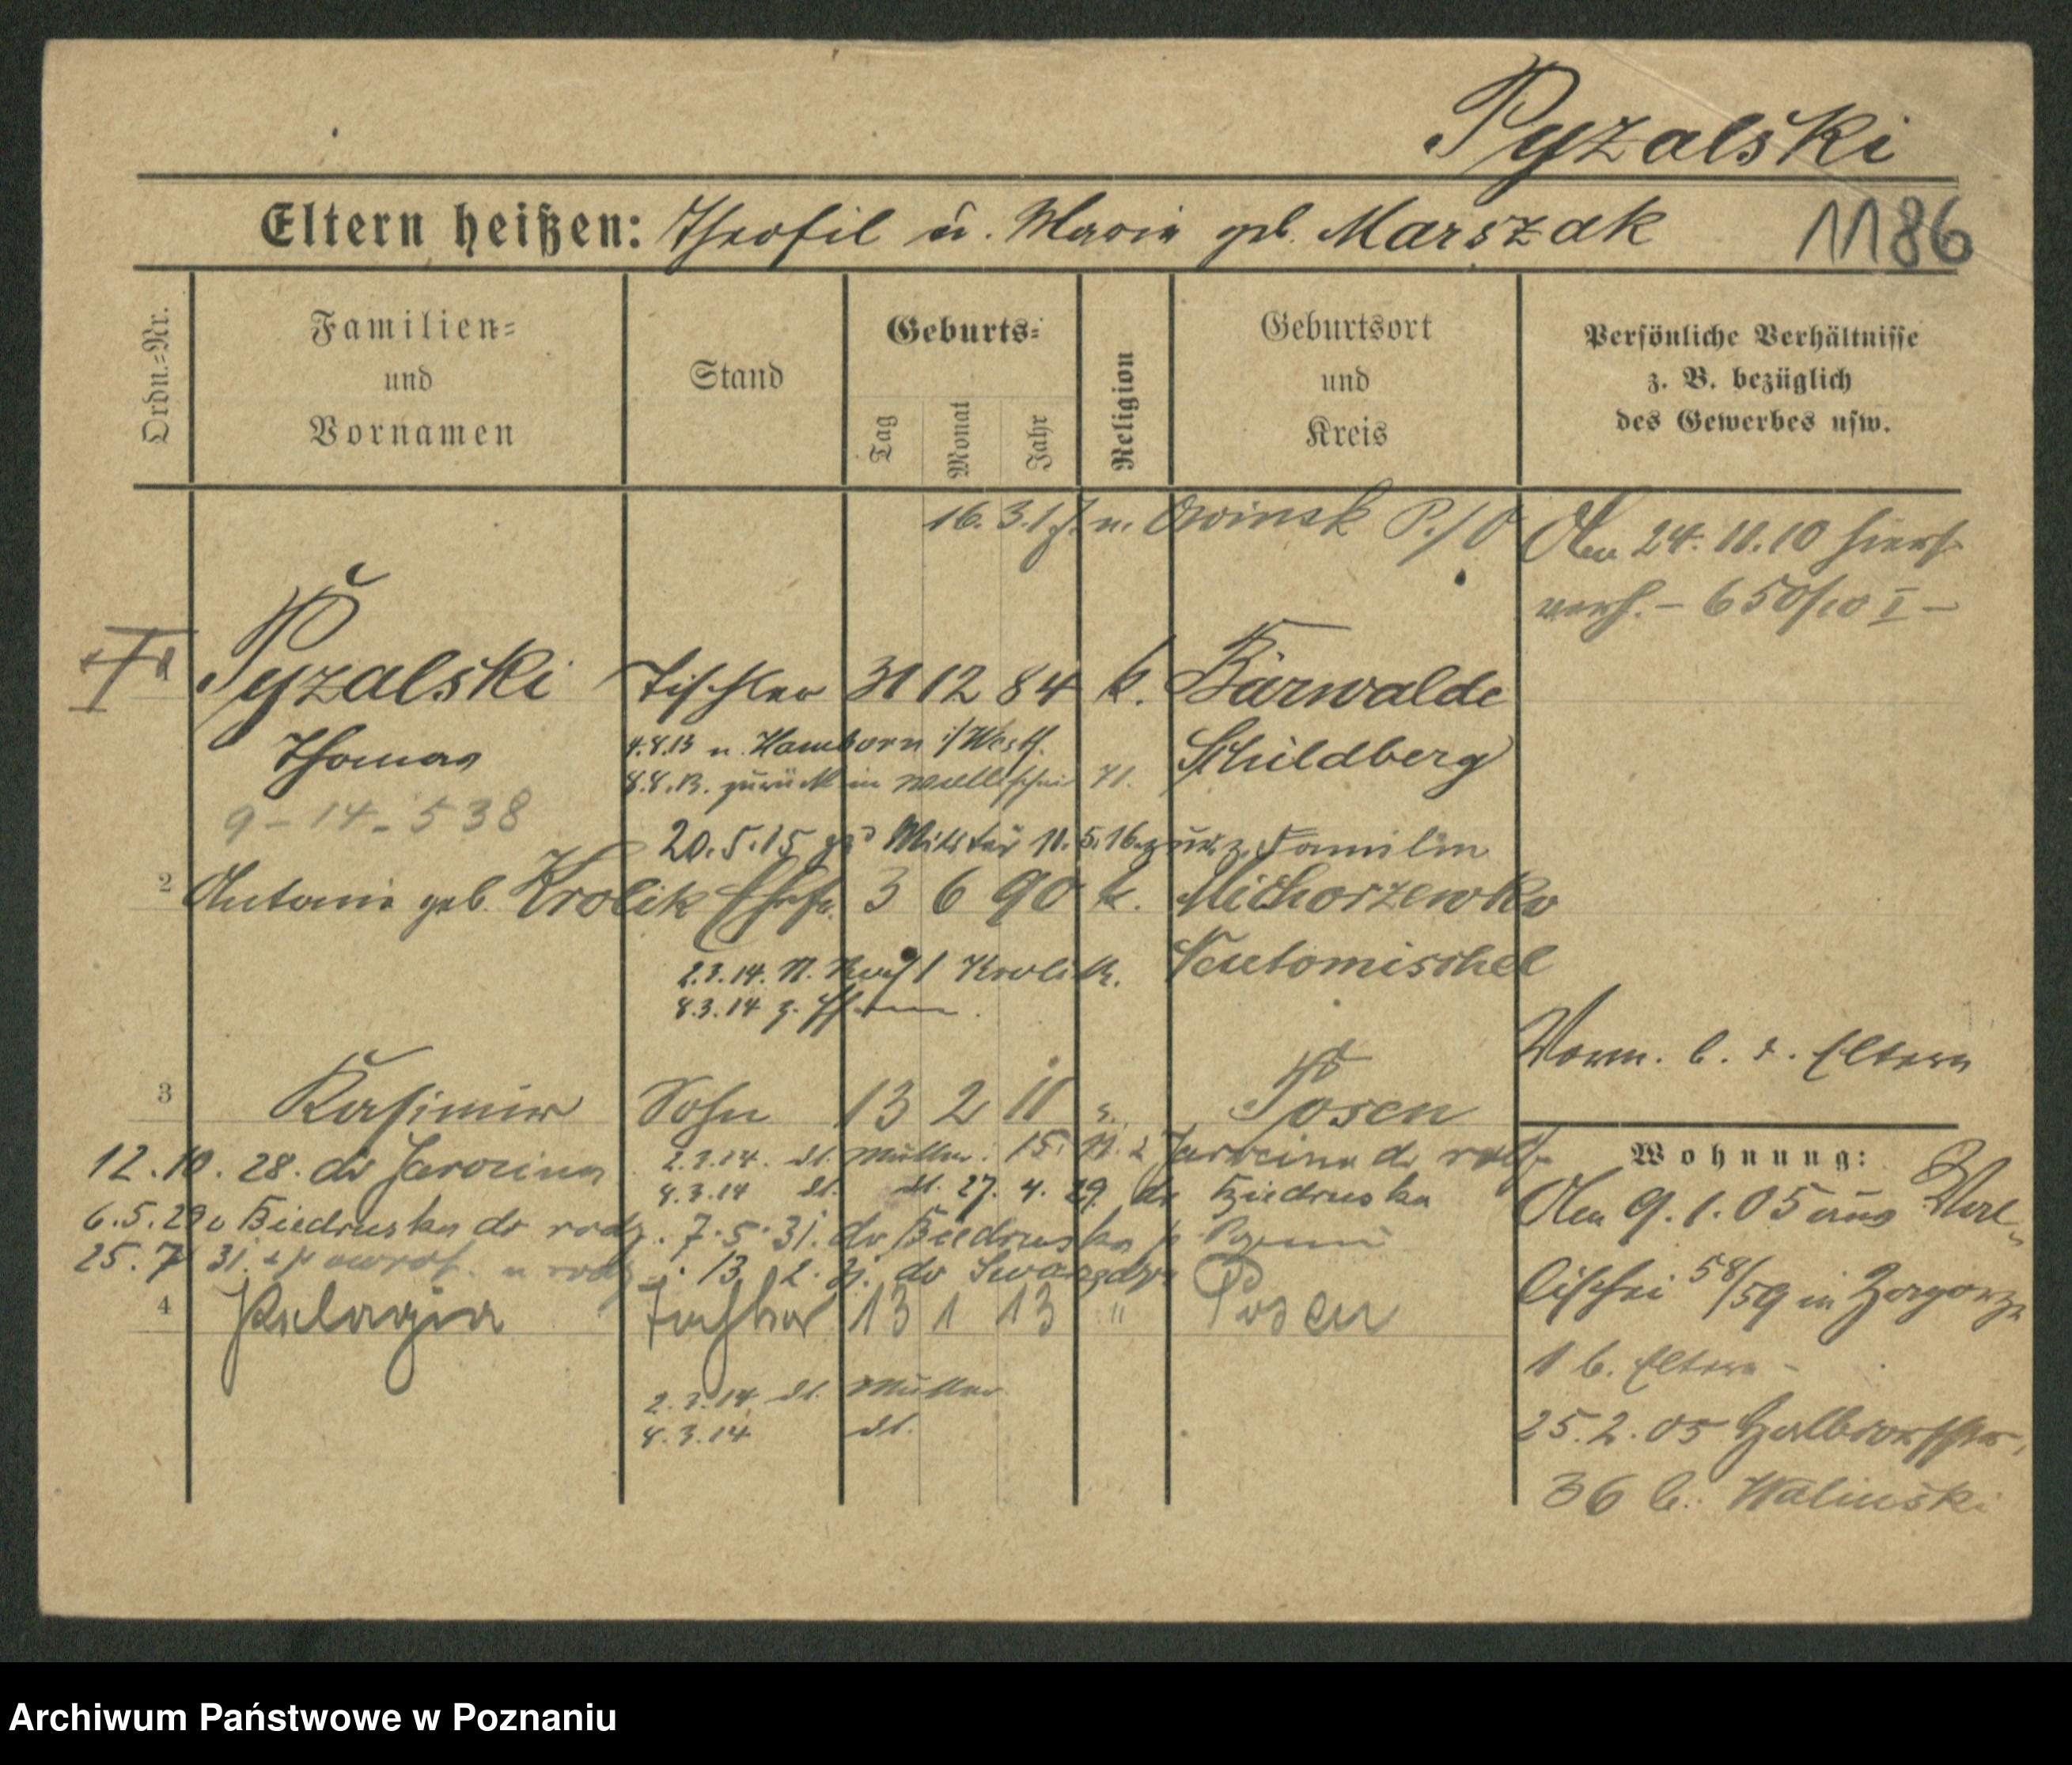 Pyzalski
Eltern heißen: Theofil u. Maria geb. Marszak
1186
Ordn.=Nr.
Familien=
und
Vornamen
Stand
Geburts=
Tag
Monat
Jahr
Religion
Geburtsort
und
Kreis
Persönliche Verhältnisse
z. B. bezüglich
des Gewerbes usw.
16. 3. 17 n. Owinsk P./O
Am 24. 11. 10 hiers.
verh. – 650/10 I –
Pyzalski Tischler 31 12 84 k. Bärwalde
Thomas 4.8.13 n. Hamborn i/Westf. Schildberg
8.8.13. zurück in
9 – 14 – 538
20.5.15 Militär 11.5.16 zur. z. Familie
2 Antonie geb. Krolik Ehefr. 3 6 90 k. Michorzewko
Neutomischel
2.3.14. Krolik.
8.3.14 z.
Worm. b. d. Eltern
3 Kasimir Sohn 13 2 11 Posen
12.10.28. do Jarocina 2.3.14. dt. Mutter. 15. 11. z Jarocina do rodz.
8.3.14 dt. dt. 27. 4. 29. do Biedruska
6.5.29 z Biedruska do rodz. 7.5.31. do Biedruska
25.7 31. z powrot. u rodz. 13. 2. do Swarzędza
4 Pelagia Tochter 13 1 13 " Posen
2.3.14 dt. Mutter
8.3.14 dt.
Wohnung:
Am 9. 1. 05 aus
58/59 in Zagorze
1 b. Eltern –
25. 2. 05 Halbdorfstr.
36 b. Walinski
Archiwum Państwowe w Poznaniu